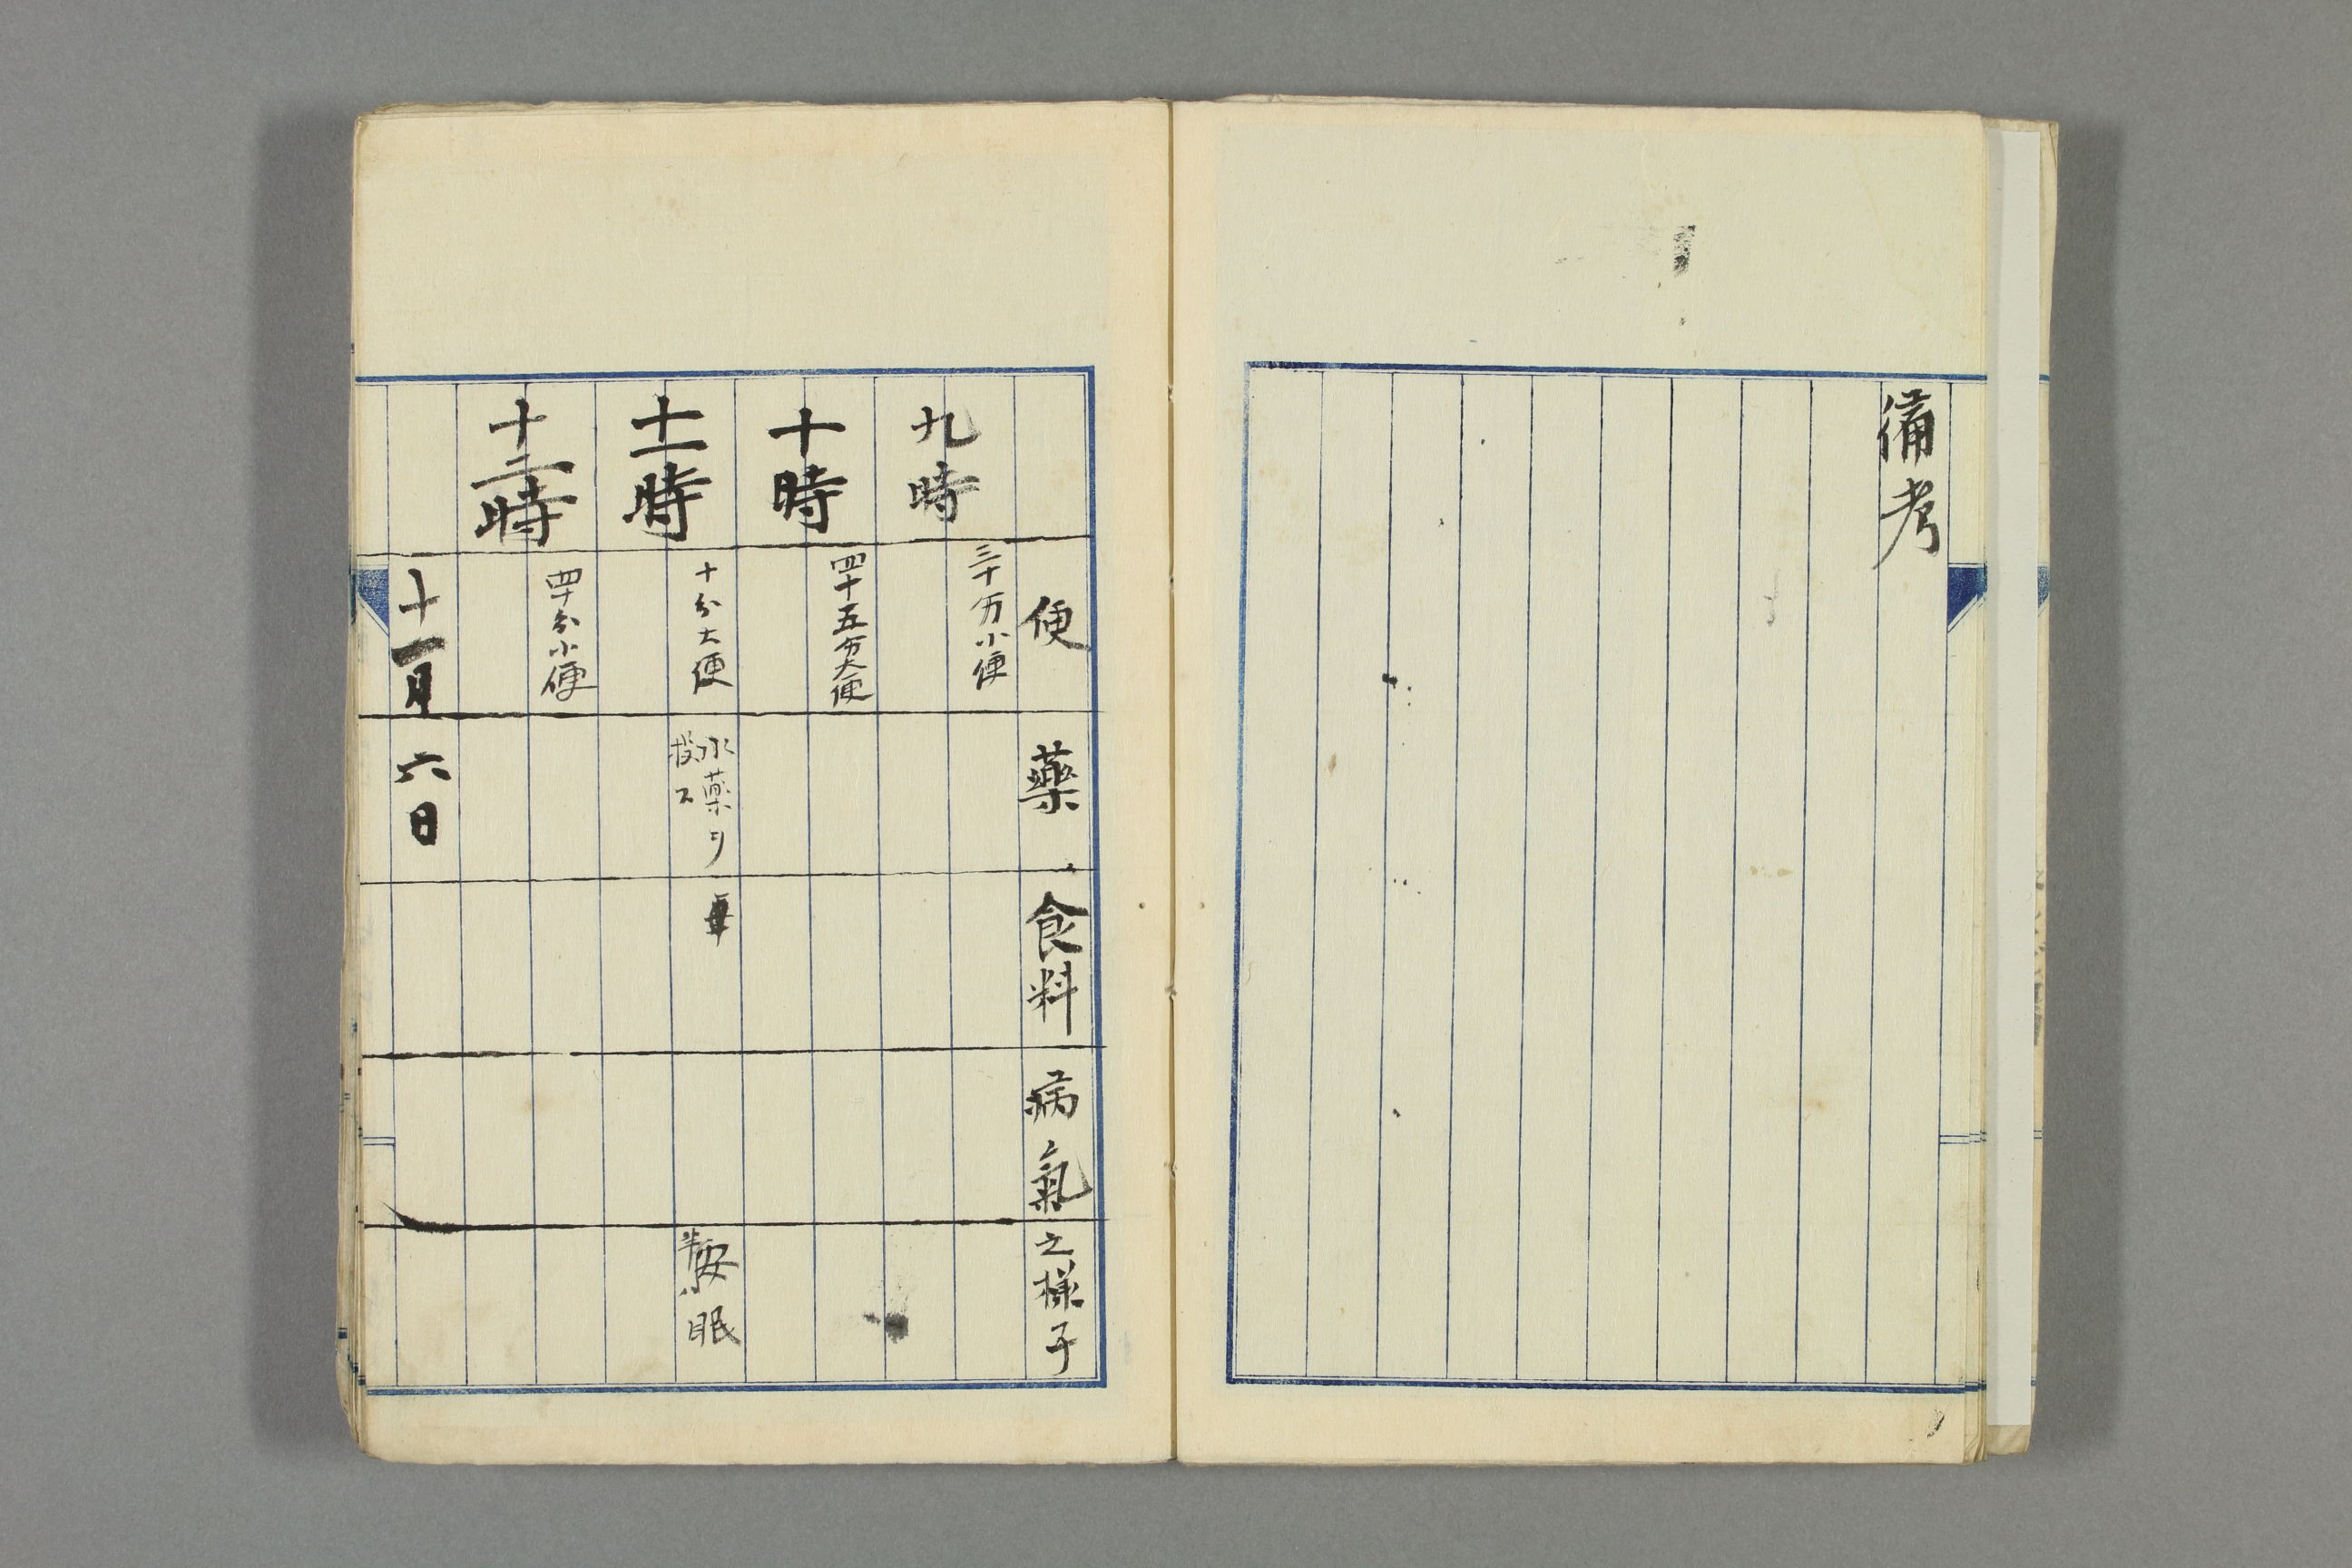 備考
便
藥
食料
病氣
之樣子
九時
三十分小便
十時
四十五分大便
十一時
十分大便
水薬ヲ
投ス
安眠
十二時
四十分小便
十一月六日